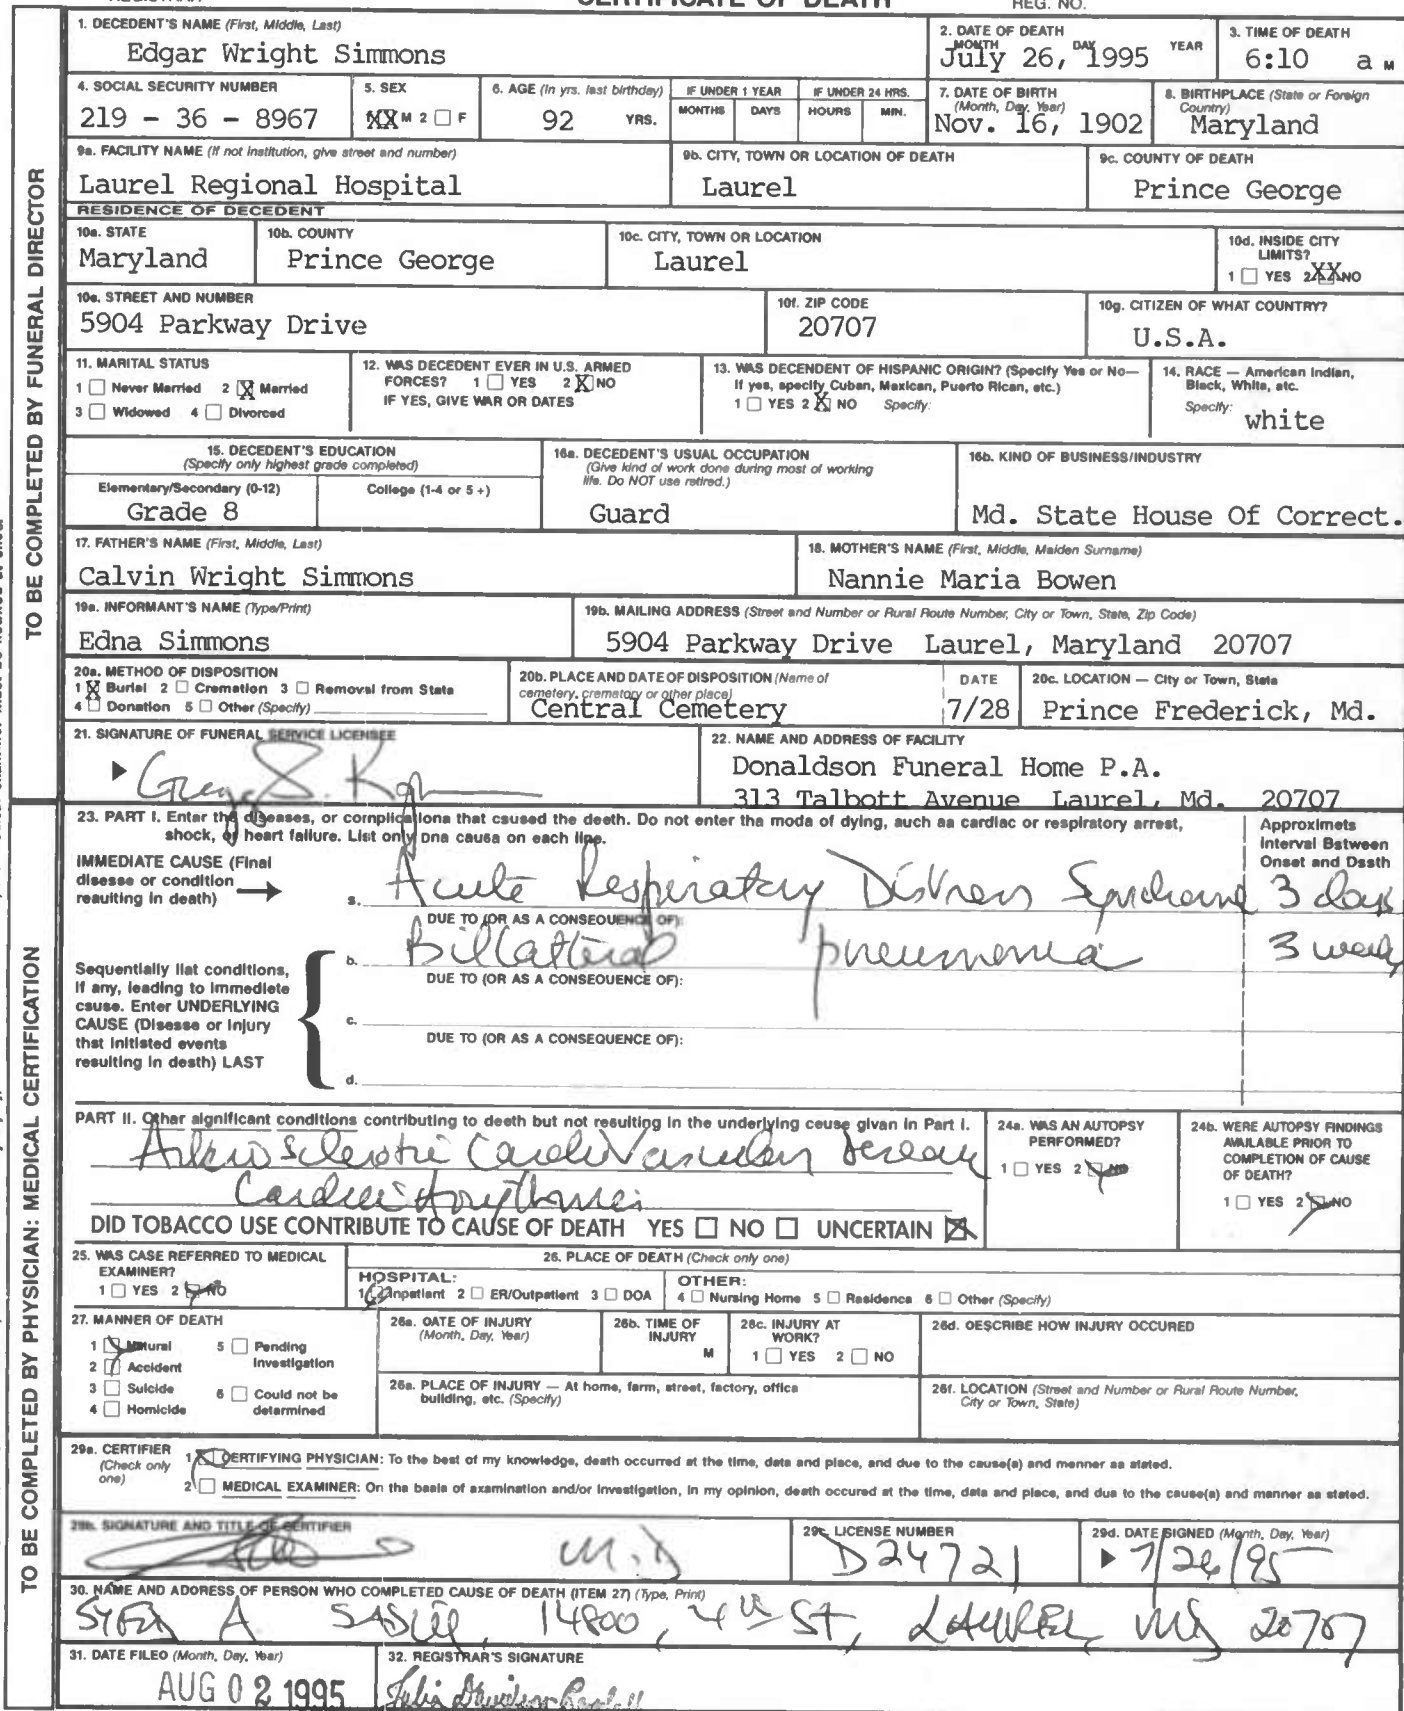 CERTIFICATE OF DEATH
REG. NO.
1. DECEDENT'S NAME (First, Middle, Last)
Edgar Wright Simmons
2. DATE OF DEATH
MONTH DAY YEAR
July 26, 1995
3. TIME OF DEATH
6:10 a M
4. SOCIAL SECURITY NUMBER
219 – 36 – 8967
5. SEX
XX M 2 ☐ F
6. AGE (In yrs. last birthday)
92 YRS.
IF UNDER 1 YEAR
MONTHS DAYS
IF UNDER 24 HRS.
HOURS MIN.
7. DATE OF BIRTH
(Month, Day, Year)
Nov. 16, 1902
8. BIRTHPLACE (State or Foreign
Country)
Maryland
9a. FACILITY NAME (If not institution, give street and number)
Laurel Regional Hospital
9b. CITY, TOWN OR LOCATION OF DEATH
Laurel
9c. COUNTY OF DEATH
Prince George
RESIDENCE OF DECEDENT
10a. STATE
Maryland
10b. COUNTY
Prince George
10c. CITY, TOWN OR LOCATION
Laurel
10d. INSIDE CITY
LIMITS?
1 ☐ YES 2 XX NO
10e. STREET AND NUMBER
5904 Parkway Drive
10f. ZIP CODE
20707
10g. CITIZEN OF WHAT COUNTRY?
U.S.A.
11. MARITAL STATUS
1 ☐ Never Married 2 ☒ Married
3 ☐ Widowed 4 ☐ Divorced
12. WAS DECEDENT EVER IN U.S. ARMED
FORCES? 1 ☐ YES 2 ☒ NO
IF YES, GIVE WAR OR DATES
13. WAS DECENDENT OF HISPANIC ORIGIN? (Specify Yes or No—
If yes, specify Cuban, Mexican, Puerto Rican, etc.)
1 ☐ YES 2 ☒ NO Specify:
14. RACE — American Indian,
Black, White, etc.
Specify: white
15. DECEDENT'S EDUCATION
(Specify only highest grade completed)
Elementary/Secondary (0-12) College (1-4 or 5 +)
Grade 8
16a. DECEDENT'S USUAL OCCUPATION
(Give kind of work done during most of working
life. Do NOT use retired.)
Guard
16b. KIND OF BUSINESS/INDUSTRY
Md. State House Of Correct.
17. FATHER'S NAME (First, Middle, Last)
Calvin Wright Simmons
18. MOTHER'S NAME (First, Middle, Maiden Surname)
Nannie Maria Bowen
19a. INFORMANT'S NAME (Type/Print)
Edna Simmons
19b. MAILING ADDRESS (Street and Number or Rural Route Number, City or Town, State, Zip Code)
5904 Parkway Drive Laurel, Maryland 20707
20a. METHOD OF DISPOSITION
1 ☒ Burial 2 ☐ Cremation 3 ☐ Removal from State
4 ☐ Donation 5 ☐ Other (Specify)
20b. PLACE AND DATE OF DISPOSITION (Name of
cemetery, crematory or other place)
Central Cemetery
DATE
7/28
20c. LOCATION — City or Town, State
Prince Frederick, Md.
21. SIGNATURE OF FUNERAL SERVICE LICENSEE
22. NAME AND ADDRESS OF FACILITY
Donaldson Funeral Home P.A.
313 Talbott Avenue Laurel, Md. 20707
TO BE COMPLETED BY FUNERAL DIRECTOR
23. PART I. Enter the diseases, or complications that caused the death. Do not enter the mode of dying, such as cardiac or respiratory arrest,
shock, or heart failure. List only one cause on each line.
Approximate
Interval Between
Onset and Death
IMMEDIATE CAUSE (Final
disease or condition
resulting in death)
a. Acute Respiratory Distress Syndrome 3 days
DUE TO (OR AS A CONSEQUENCE OF):
b. Billateral pneumonia 3 weeks
DUE TO (OR AS A CONSEQUENCE OF):
Sequentially list conditions,
if any, leading to immediate
cause. Enter UNDERLYING
CAUSE (Disease or Injury
that initiated events
resulting in death) LAST
c.
DUE TO (OR AS A CONSEQUENCE OF):
d.
PART II. Other significant conditions contributing to death but not resulting in the underlying cause given in Part I.
CardioVascular
Cardiac
DID TOBACCO USE CONTRIBUTE TO CAUSE OF DEATH YES ☐ NO ☐ UNCERTAIN ☒
24a. WAS AN AUTOPSY
PERFORMED?
1 ☐ YES 2 ☒ NO
24b. WERE AUTOPSY FINDINGS
AVAILABLE PRIOR TO
COMPLETION OF CAUSE
OF DEATH?
1 ☐ YES 2 ☒ NO
25. WAS CASE REFERRED TO MEDICAL
EXAMINER?
1 ☐ YES 2 ☒ NO
26. PLACE OF DEATH (Check only one)
HOSPITAL:
1 ☒ Inpatient 2 ☐ ER/Outpatient 3 ☐ DOA
OTHER:
4 ☐ Nursing Home 5 ☐ Residence 6 ☐ Other (Specify)
27. MANNER OF DEATH
1 ☒ Natural 5 ☐ Pending
Investigation
2 ☐ Accident
3 ☐ Suicide 6 ☐ Could not be
determined
4 ☐ Homicide
28a. DATE OF INJURY
(Month, Day, Year)
28b. TIME OF
INJURY
M
28c. INJURY AT
WORK?
1 ☐ YES 2 ☐ NO
28d. DESCRIBE HOW INJURY OCCURED
28e. PLACE OF INJURY — At home, farm, street, factory, office
building, etc. (Specify)
28f. LOCATION (Street and Number or Rural Route Number,
City or Town, State)
29a. CERTIFIER
(Check only
one)
1 ☒ CERTIFYING PHYSICIAN: To the best of my knowledge, death occurred at the time, date and place, and due to the cause(s) and manner as stated.
2 ☐ MEDICAL EXAMINER: On the basis of examination and/or investigation, in my opinion, death occured at the time, date and place, and due to the cause(s) and manner as stated.
29b. SIGNATURE AND TITLE OF CERTIFIER
M.D
29c. LICENSE NUMBER
D24721
29d. DATE SIGNED (Month, Day, Year)
7/26/95
30. NAME AND ADDRESS OF PERSON WHO COMPLETED CAUSE OF DEATH (ITEM 27) (Type, Print)
SYED A 14800, 4th ST, LAUREL, MD 20707
31. DATE FILED (Month, Day, Year)
AUG 02 1995
32. REGISTRAR'S SIGNATURE
TO BE COMPLETED BY PHYSICIAN: MEDICAL CERTIFICATION